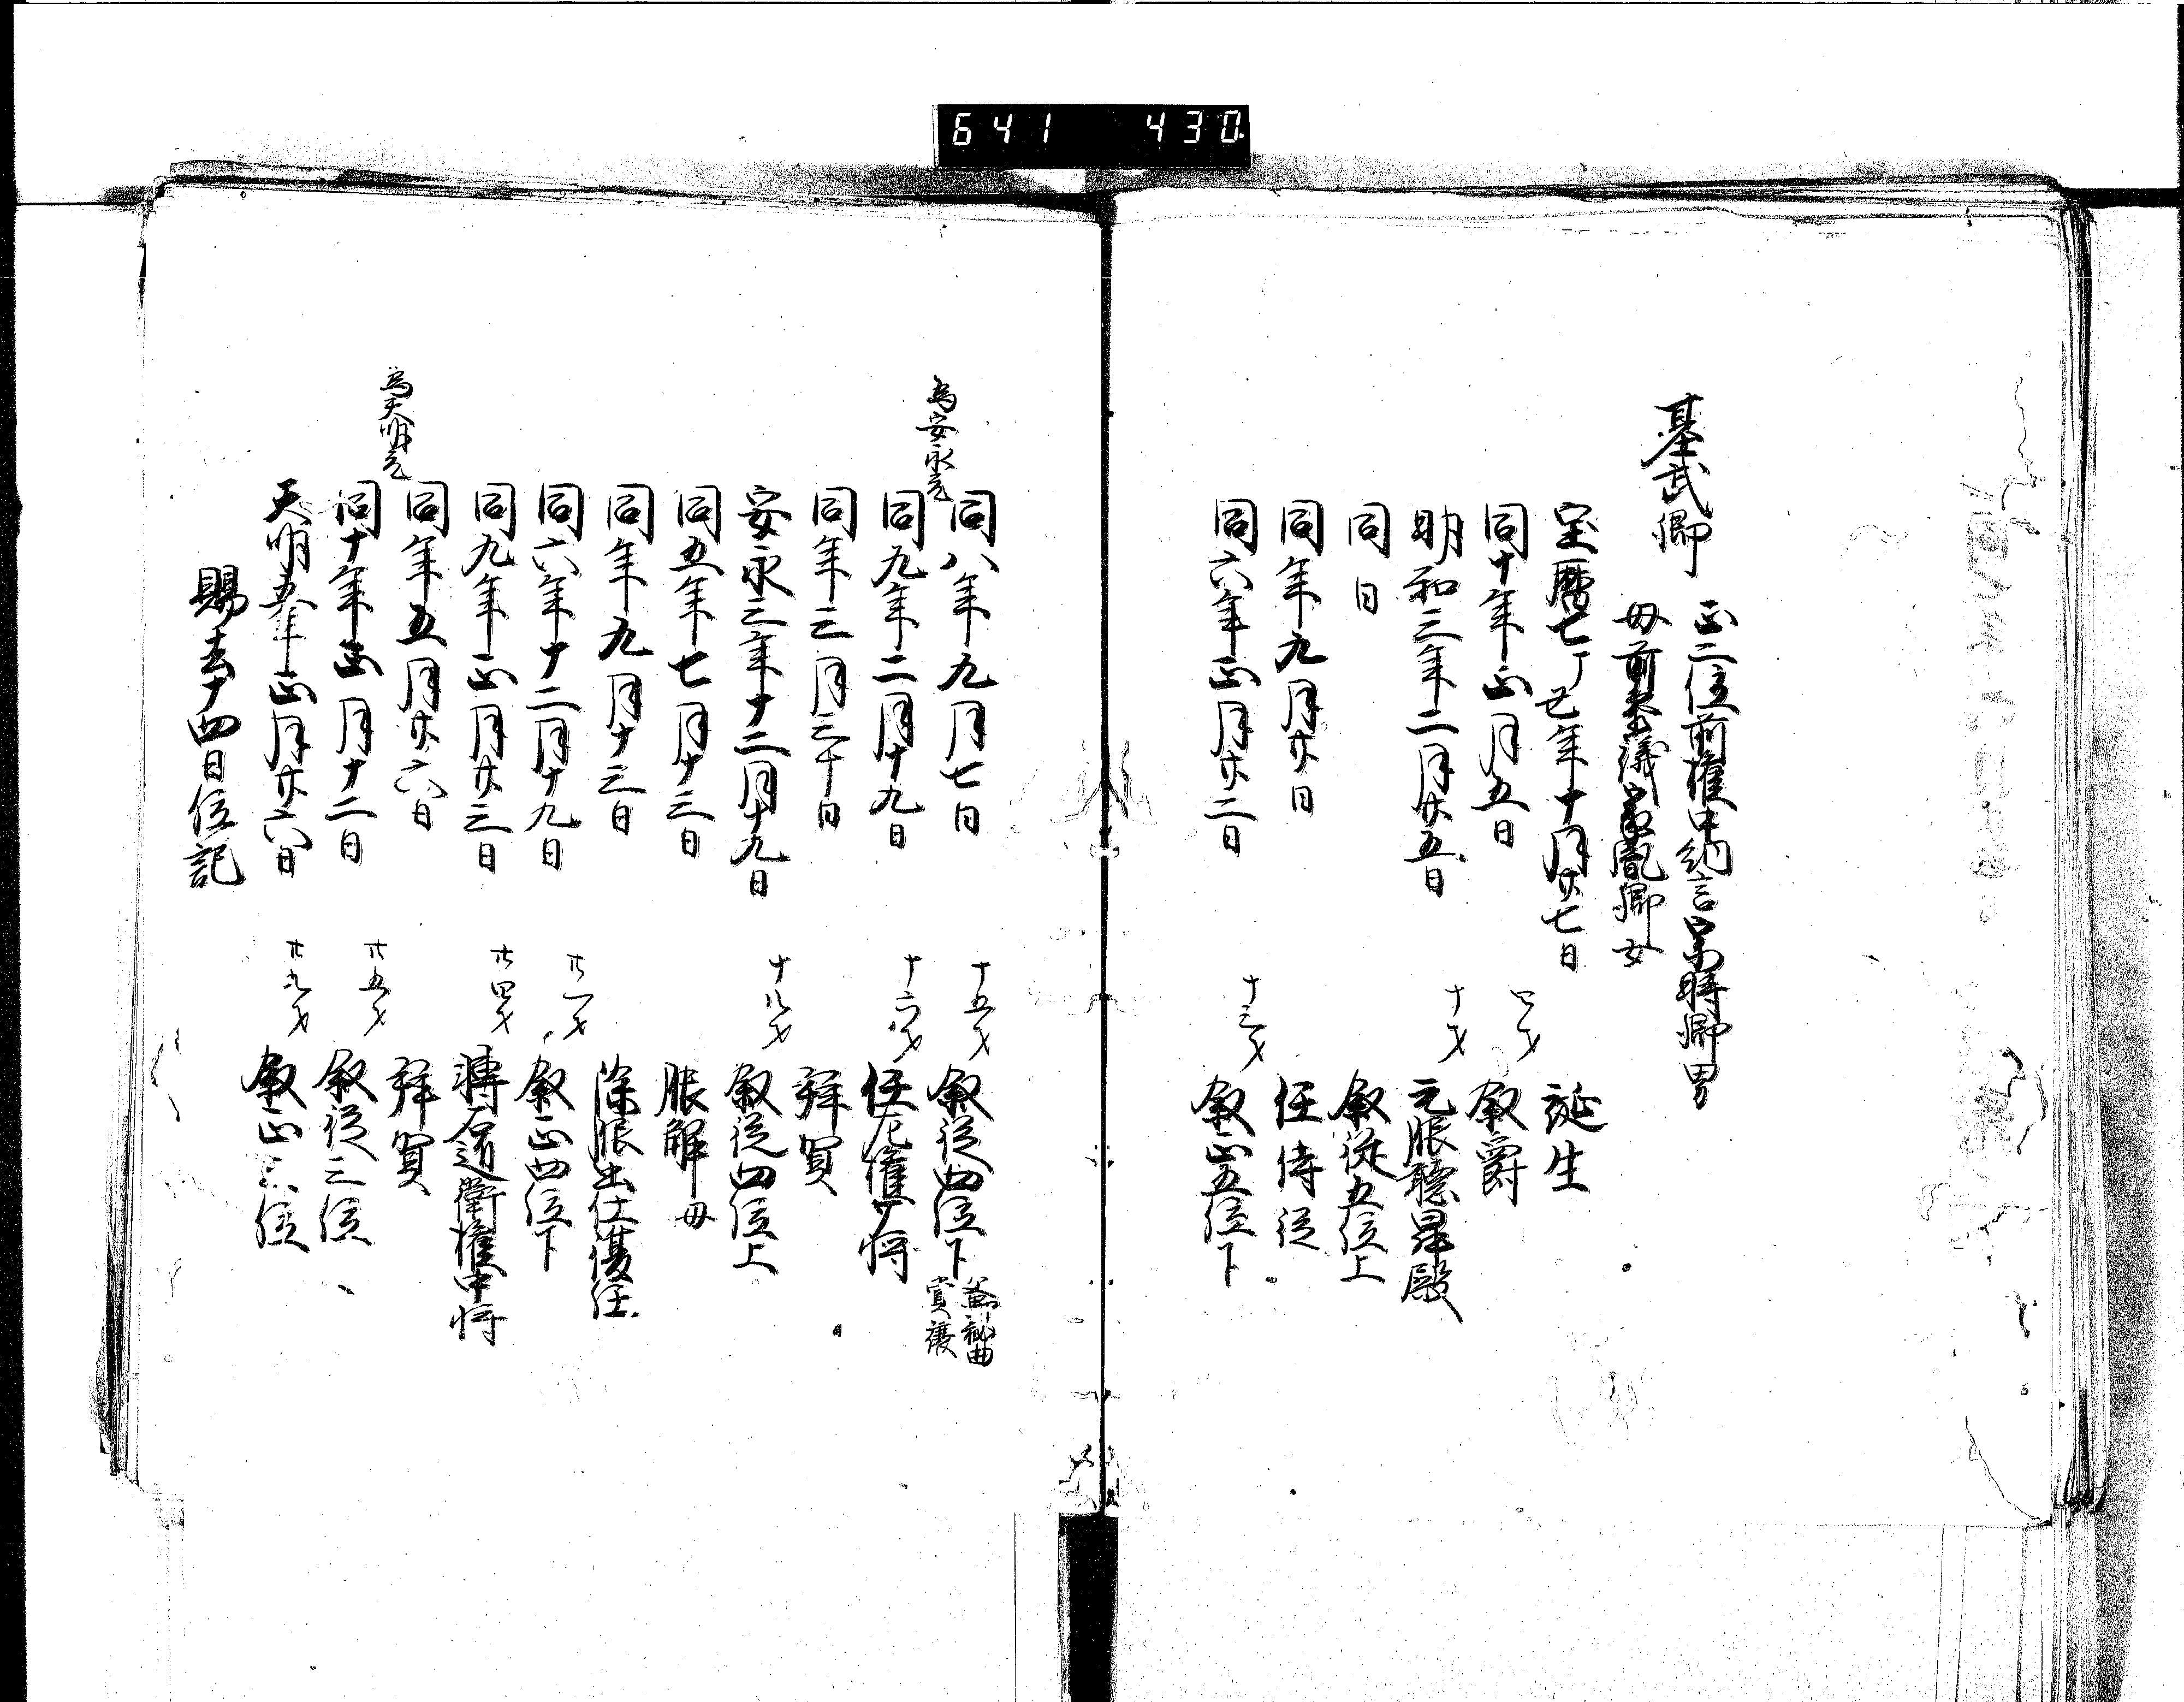 641 430
基武卿
正二位前権中納言宗時卿男
母前参議家胤卿女
宝暦七丁丑年十月廿七日 誕生
同十年正月五日 四才 叙爵
明和三年二月廿五日 十才 元服聴昇殿
同日 叙従五位上
同年九月廿日 任侍従
同六年正月廿二日 十三才 叙正五位下
同八年九月七日 十五才 叙従四位下 秘曲賞譲
為安永元
同九年二月十九日 十六才 任左権少将
同年三月三十日 拝賀
安永三年十二月十九日 十八才 叙従四位上
同五年七月十三日 服解母
同年九月十三日 除服出仕復任
同六年十二月十九日 廿一才 叙正四位下
同九年正月廿三日 廿四才 転右近衛権中将
同年五月廿六日 拝賀
為天明元
同十年正月十二日 廿五才 叙従三位
天明五年正月廿六日 廿九才 叙正三位
賜去十四日位記